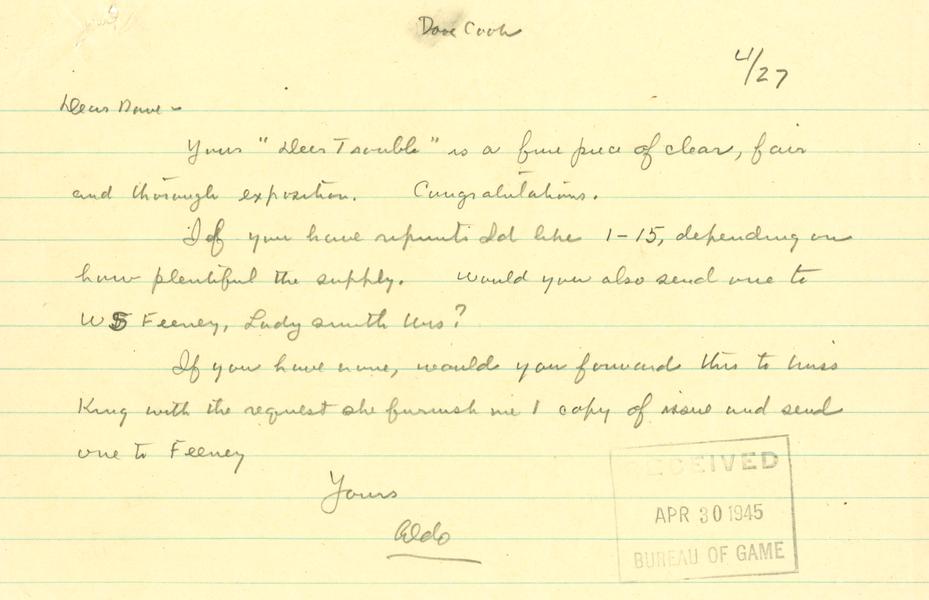 Dave Cook
4/27
Dear Dave -
Your "Deer Trouble" is a fine piece of clear, fair
and thorough exposition. Congratulations.
If you have reprints I'd like 1-15, depending on
how plentiful the supply. Would you also send one to
WS Feeney, Ladysmith Wis?
If you have none, would you forward this to Miss
King with the request she furnish me 1 copy of issue and send
one to Feeney
Yours
Aldo
RECEIVED
APR 30 1945
BUREAU OF GAME